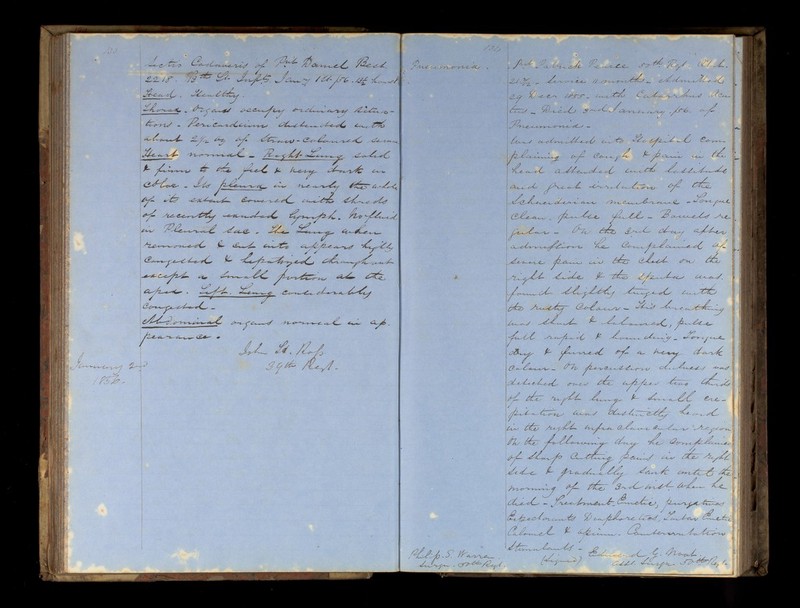 Sectio Cadaveris of Pvt Daniel Beed
Head. Healthy
Thorax. Organs occupy ordinary situa-
tions - Pericardium distended with
about of Straw-coloured serum
Heart normal - Right Lung solid
& firm to the feel & very dark in
color. Its pleura in nearly the whole
of its extent covered with shreds
of recently exuded lymph. No fluid
in Pleural sac. The Lung when
removed & cut into appears highly
Congested & hepatized throughout
except a small portion at the
apex. Left Lung considerably
Congested.
Abdominal organs normal in ap-
pearance.
John
59th Regt.
January
Pneumonia.
Service months admitted
with
Died 3rd January of
Pneumonia -
Was admitted into Hospital com
plaining of cough & pain in the
head attended with lassitude
and great irritation of the
Schneiderian membrane - Tongue
clean, pulse full - Bowels re
gular - On the 3rd day after
admission he complained of
severe pain in the chest on the
right side & the sputa was
found slightly tinged with
the rusty colour - His breathing
was short & laboured, pulse
full rapid & bounding - Tongue
dry & furred of a very dark
colour - On percussion dulness was
detected over the upper two thirds
of the right lung & small cre-
pitation was distinctly heard
in the right infra clavicular region
On the following day he complained
of sharp cutting pains in the right
side & gradually sank until the
morning of the 3rd inst when he
died - Treatment Emetics, purgatives
Expectorants Diaphoretics, Tartar Emetic
Calomel & opium. Counterirritation
Stimulants -
(Signed) Edward G.
Asst Surgn 50th Regt
Philip S. Warren
Surgn Regt